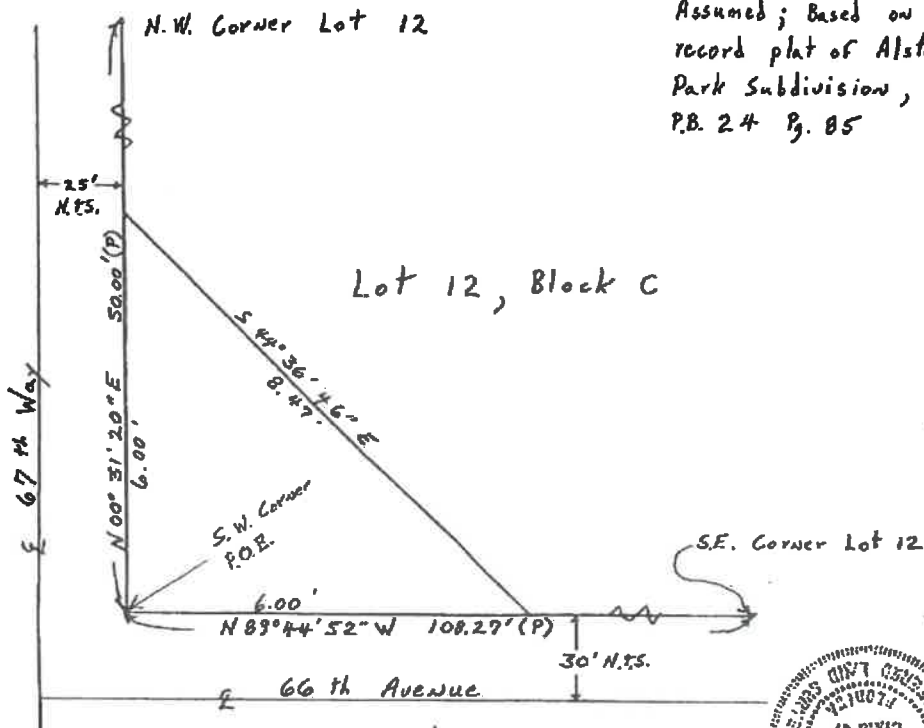 N.W. Corner Lot 12
Assumed; Based on
record plat of Alst
Park Subdivision,
P.B. 24 Pg. 85
25'
N.T.S.
50.00'(P)
Lot 12, Block C
S 44°36'46" E
8.47'
67th Way
℄
N 00°31'20" E
6.00'
S.W. Corner
P.O.B.
S.E. Corner Lot 12
6.00'
N 89°44'52" W 108.27'(P)
30' N.T.S.
℄ 66th Avenue